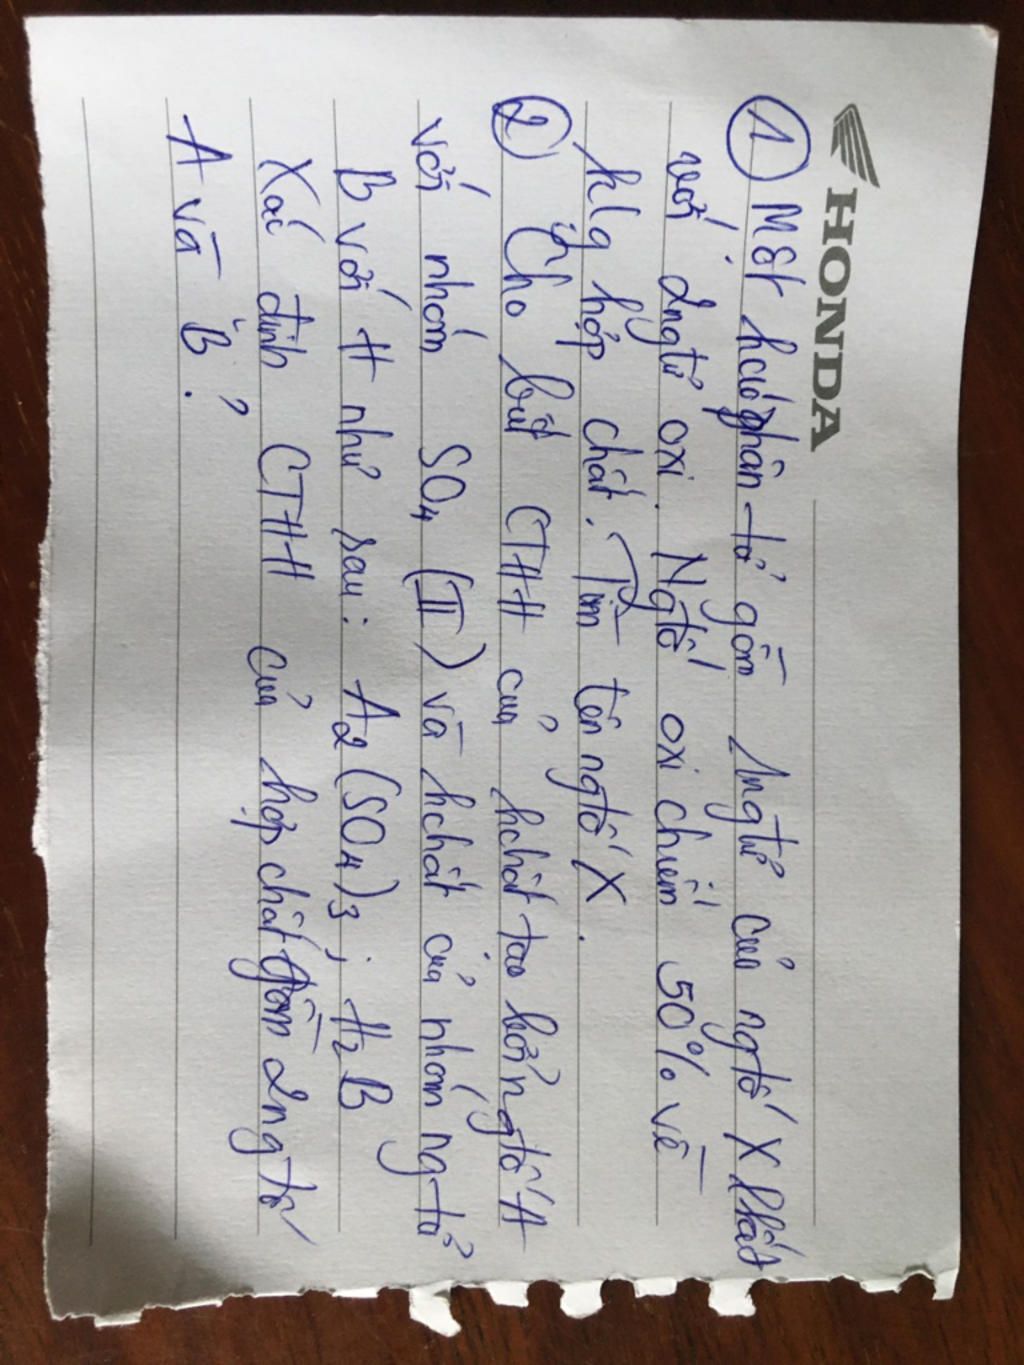 HONDA
① Một hchất phân tử gồm 1ngtử của ngtố X lkết
với 2ngtử oxi. Ngtố oxi chiếm 50% về
klg hợp chất. Tìm tên ngtố X.
② Cho biết CTHH của hchất tạo bởi ngtố A
với nhóm SO₄ (II) và hchất của nhóm ngtử
B với H như sau: A₂(SO₄)₃; H₂B
Xác định CTHH của hợp chất gồm 2ngtố
A và B?